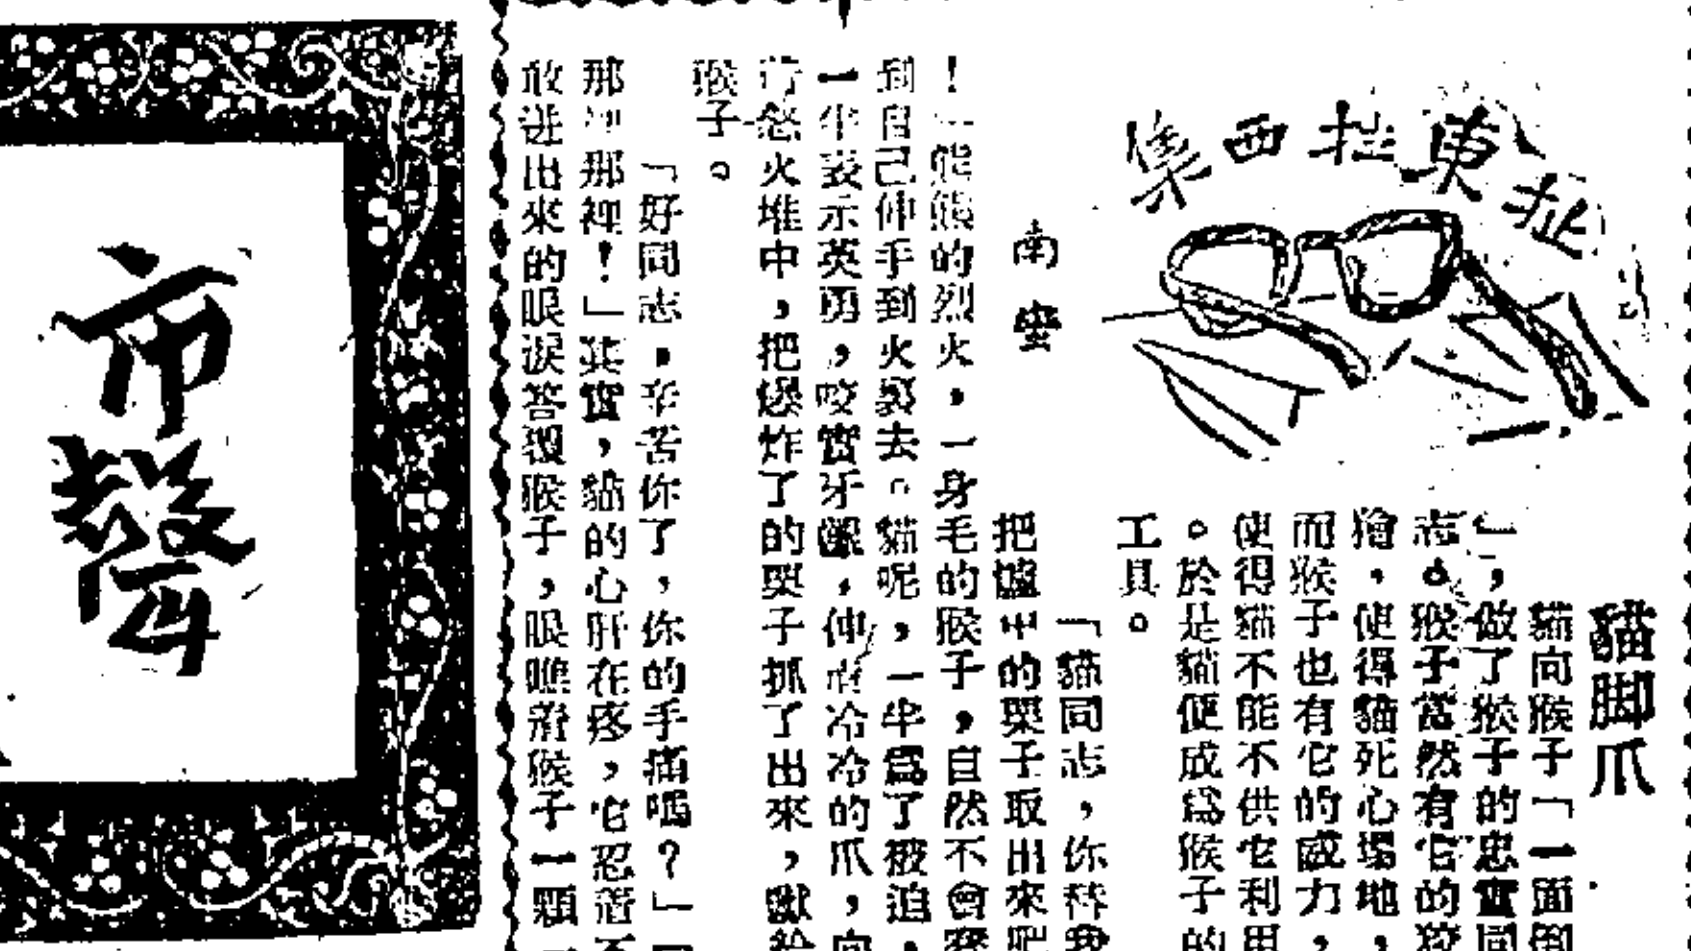 東拉西集
南蛮
貓脚爪
貓向猴子「一面倒
」，做了猴子的忠實同
志。猴子當然有它的狡
獪，使得貓死心塌地，
而猴子也有它的威力，
使得貓不能不供它利用
。於是貓便成爲猴子的
工具。
「貓同志，你替我
把爐中的栗子取出來吧
！」熊熊的烈火，一身毛的猴子，自然不會
到自己伸手到火裏去。貓呢，一半爲了被迫，
一半表示英勇，咬實牙齦，伸出冷冷的爪，向
火堆中，把爆炸了的栗子抓了出來，獻給
猴子。
「好同志，辛苦你了，你的手痛嗎？」「
那裡那裡！」其實，貓的心肝在疼，它忍着不
敢迸出來的眼淚答覆猴子，眼瞧着猴子一顆一
市聲